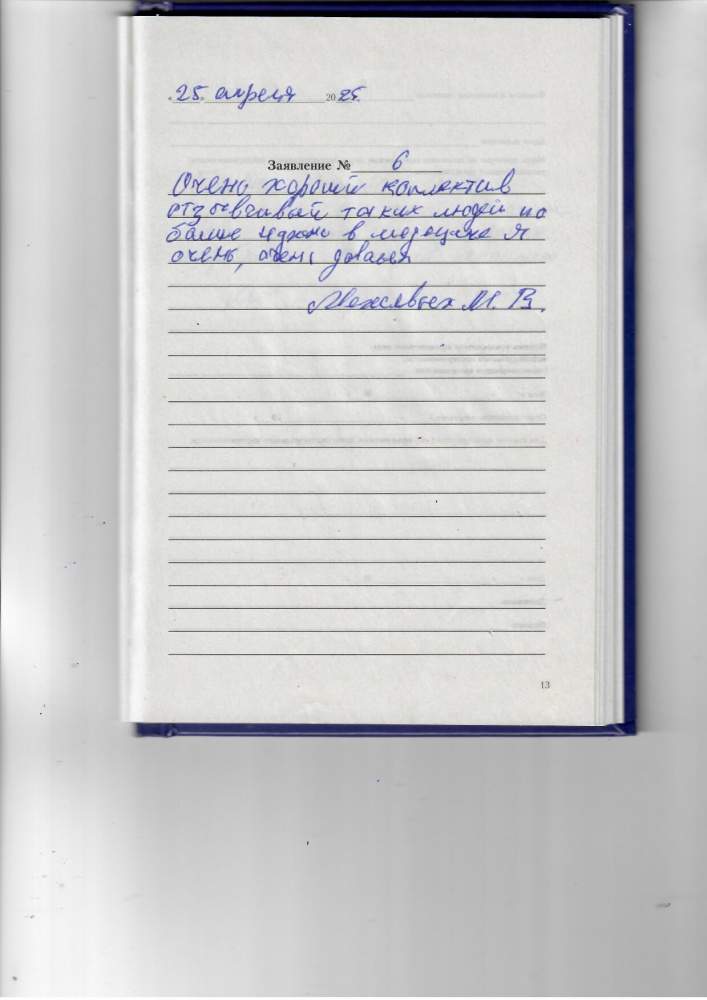 "25" апреля 2025.
Заявление № 6
Очень хороший коллектив
отзывчивый таких людей по
больше в медецине я
очень, очень довольна
М. В.
13